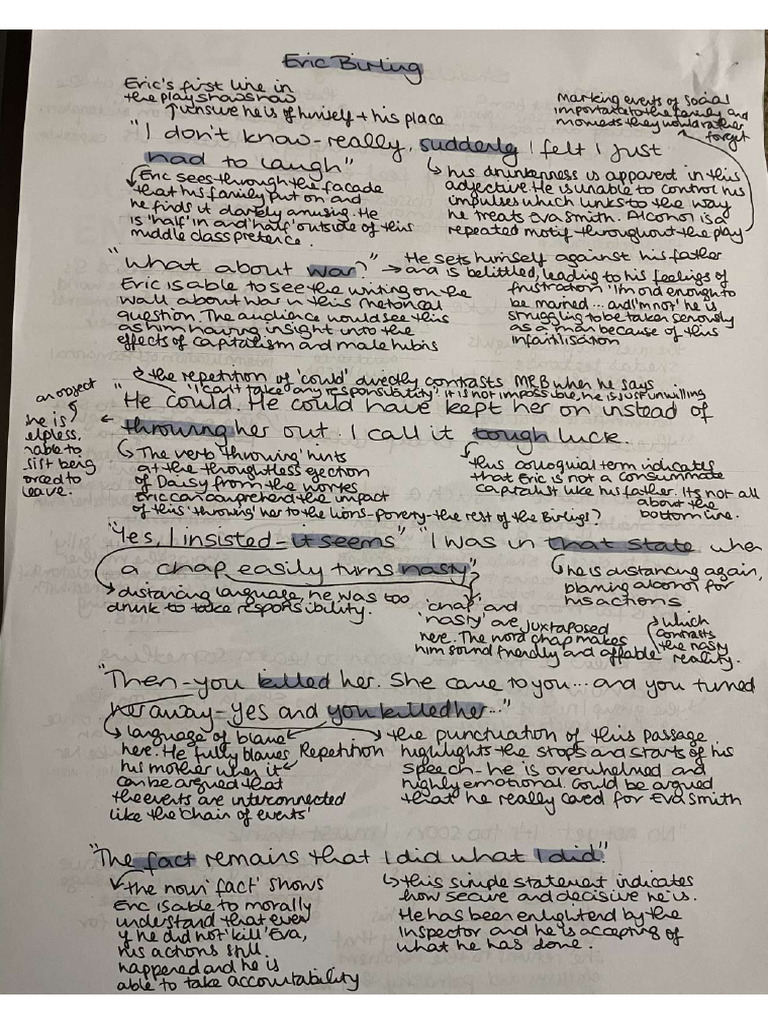 Eric Birling
Eric's first line in
the play shows how
unsure he is of himself + his place
Marking events of social
importance to the family and
moments they would rather
forget
"I don't know-really, suddenly I felt I just
had to laugh"
Eric sees through the facade
that his family put on and
he finds it darkly amusing. He
is 'half' in and 'half' outside of this
middle class pretence.
his drunkenness is apparent in this
adjective. He is unable to control his
impulses which links to the way
he treats Eva Smith. Alcohol is a
repeated motif throughout the play
"What about war?"
He sets himself against his father
and is belittled, leading to his feelings of
frustration 'I'm old enough to
be married... and I'm not' he is
struggling to be taken seriously
as a man because of this
infantilisation
Eric is able to see the writing on the
wall about war in this rhetorical
question. The audience would see this
as him having insight into the
effects of capitalism and male hubris
the repetition of 'could' directly contrasts MR B when he says
'I can't take any responsibility'. it is not impossible, he is just unwilling
"He could. He could have kept her on instead of
throwing her out. I call it tough luck.
an object
he is
elpless,
nable to
sist being
orced to
leave.
The verb 'throwing' hints
at the thoughtless ejection
of Daisy from the works
Eric can comprehend the impact
of this 'throwing' her to the lions-poverty-the rest of the Birlings?
this colloquial term indicates
that Eric is not a consummate
capitalist like his father. Its not all
about the
bottom line.
"Yes, I insisted-it seems" "I was in that state when
a chap easily turns nasty"
distancing language, he was too
drunk to take responsibility.
'chap' and
'nasty' are juxtaposed
here. The word chap makes
him sound friendly and affable
which
contrasts
the nasty
reality.
he is distancing again,
blaming alcohol for
his actions
"Then-you killed her. She came to you... and you turned
her away-yes and you killed her..."
language of blame
here. He fully blames
his mother when it
can be argued that
the events are interconnected
like the 'chain of events'
Repetition
the punctuation of this passage
highlights the stops and starts of his
speech-he is overwhelmed and
highly emotional. Could be argued
that he really cared for Eva Smith
"The fact remains that I did what I did."
the noun 'fact' shows
Eric is able to morally
understand that even
if he did not 'kill' Eva,
his actions still
happened and he is
able to take accountability
this simple statement indicates
how secure and decisive he is.
He has been enlightend by the
Inspector and he is accepting of
what he has done.